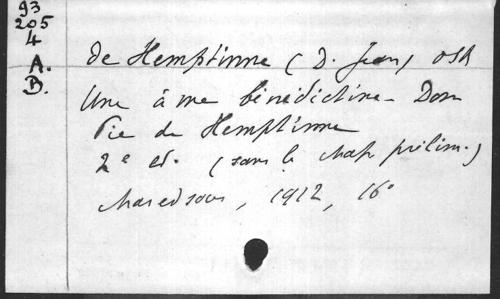 93
205
4
A.
B.
de Hemptinne (D. Jean) OSB
Une âme bénédictine - Dom
Pie de Hemptinne
2e ed. (sans le prélim.)
Maredsous, 1912, 16°